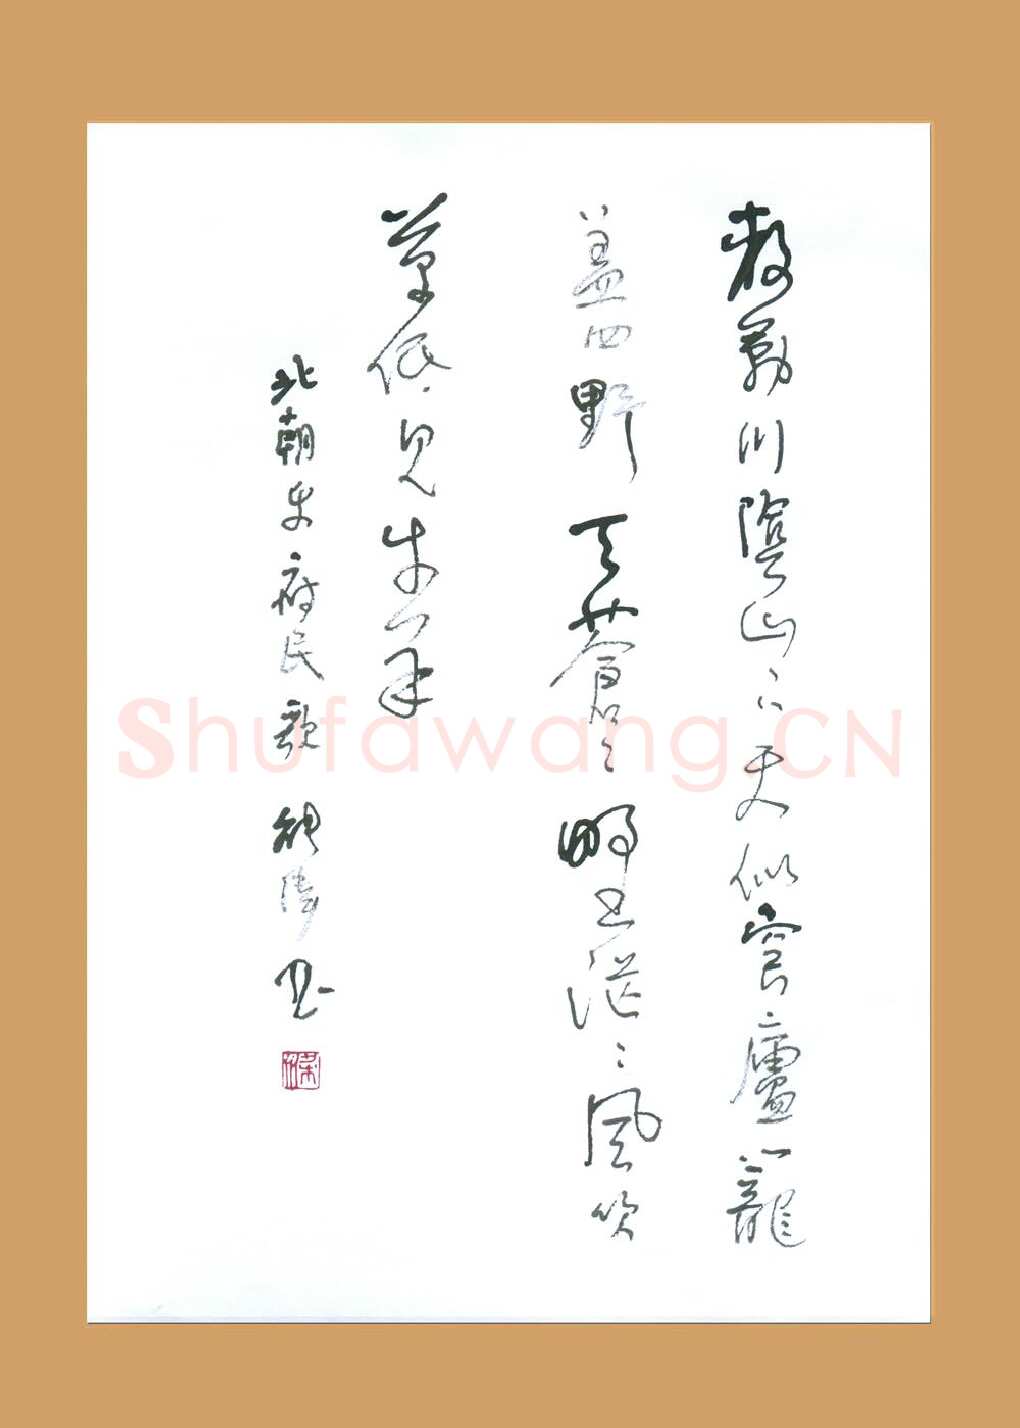 敕勒川陰山々下天似穹廬籠
蓋四野天蒼々野茫々風吹
草低見牛羊
北朝樂府民歌 書
Shufawang.CN